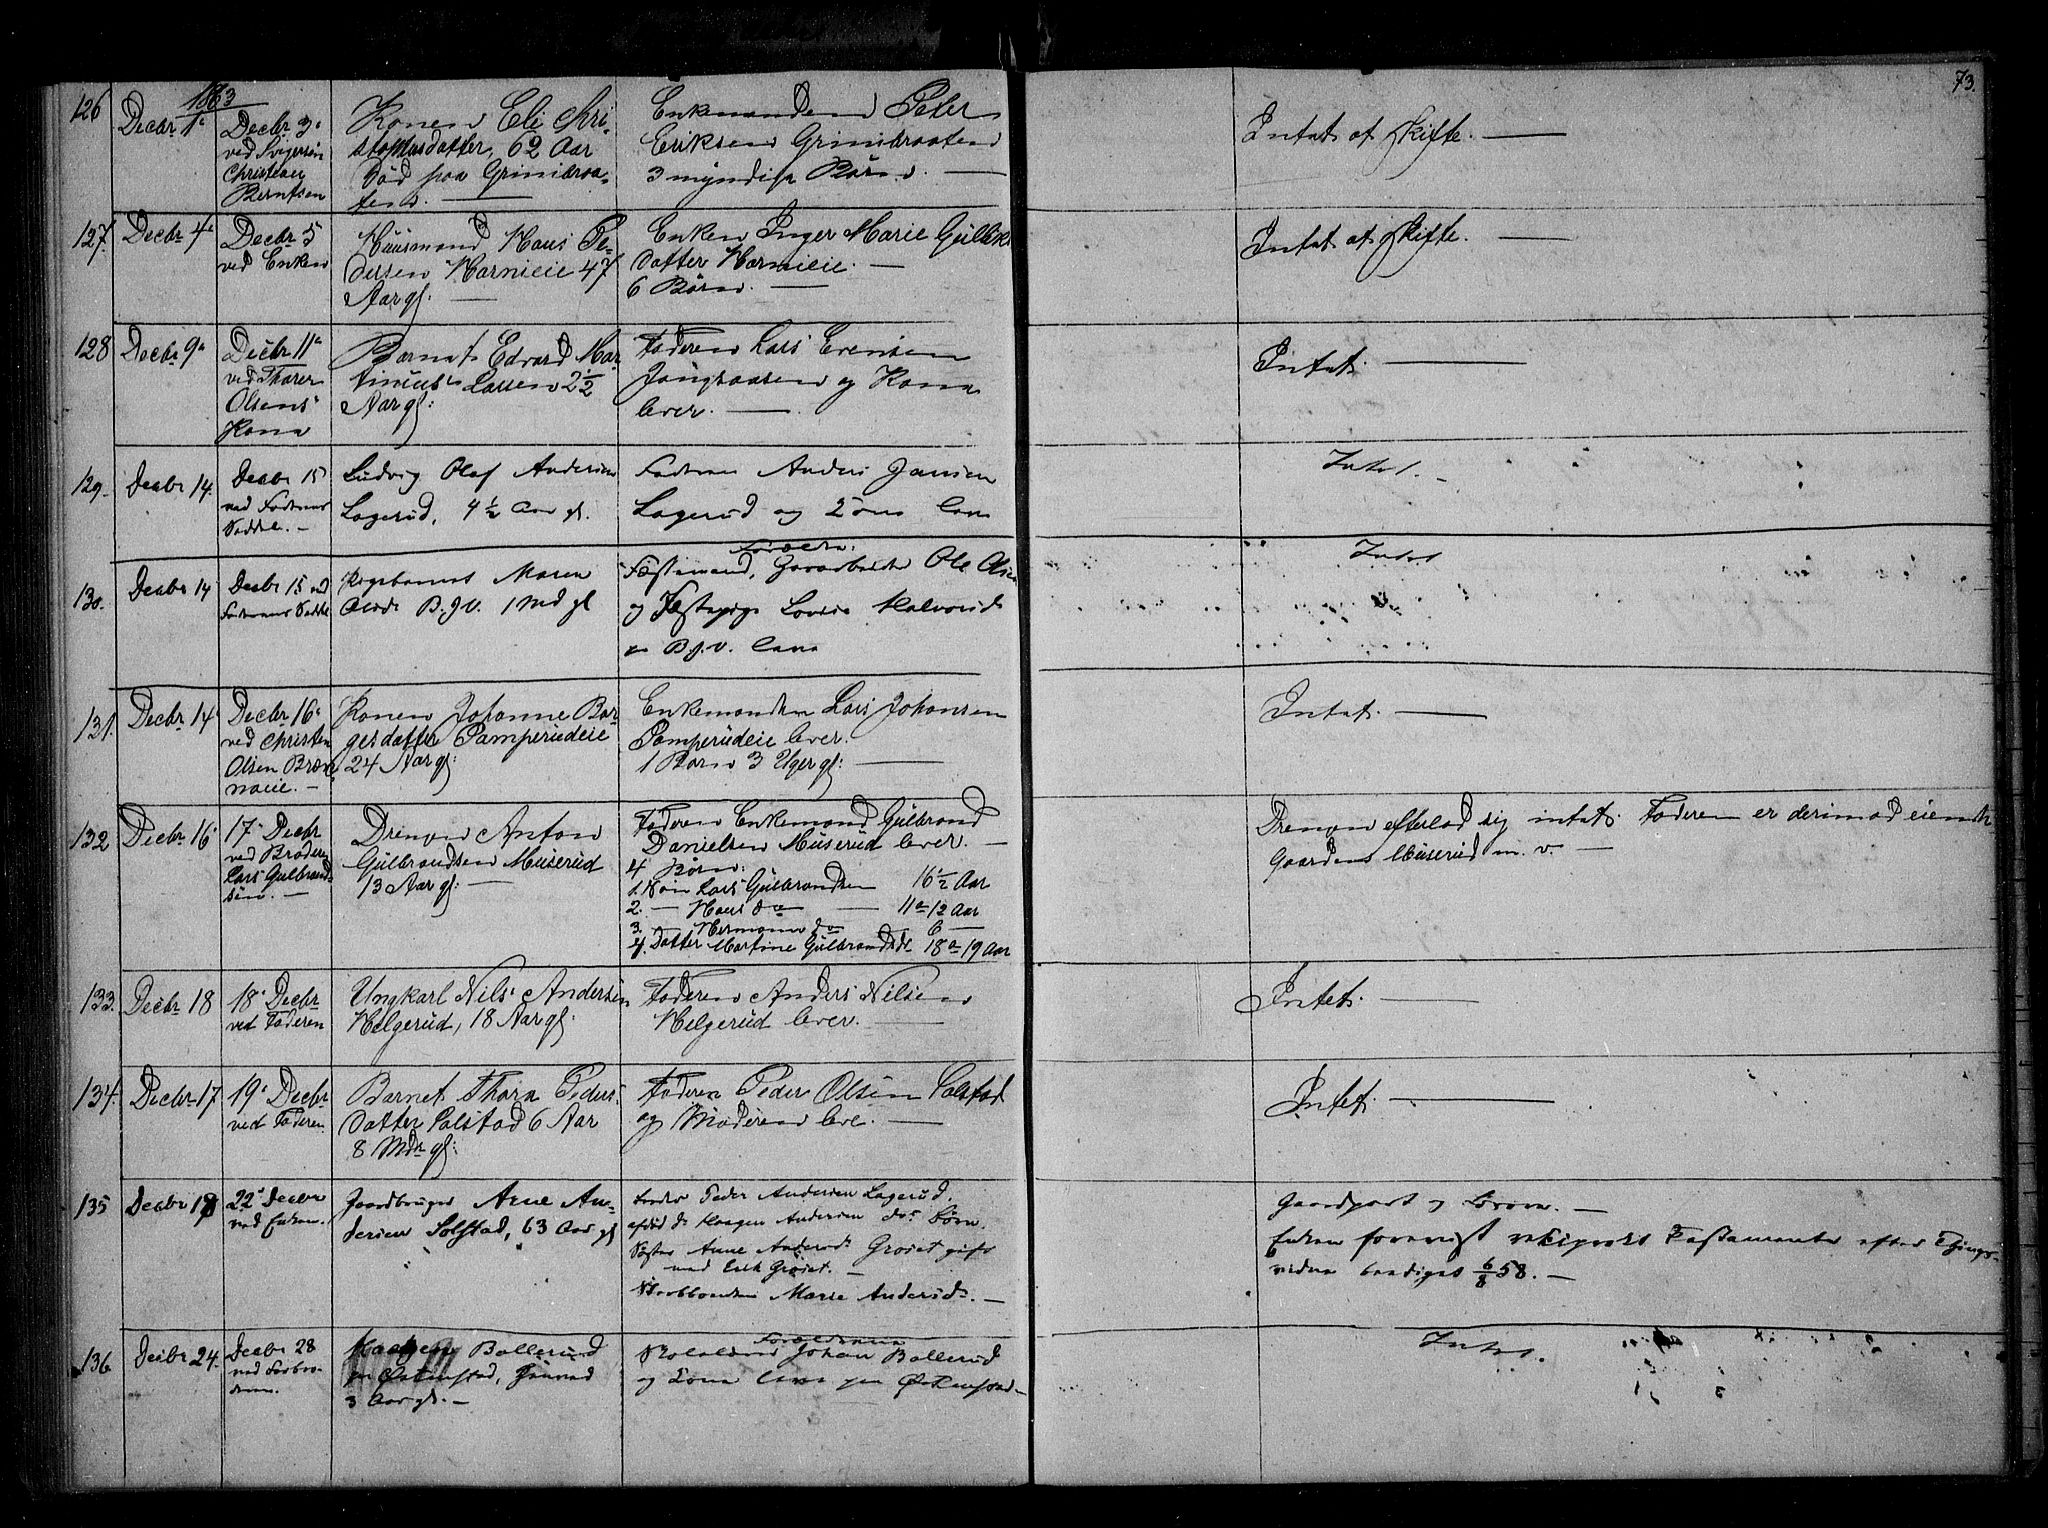 73.
1863
126
Decbr 1ª
Decbr 3ª
ved Svigersøn
Christian
Berntsen
Konen Eli Chri-
stophersdatter, 62 Aar
Død paa Grinibraa-
ten.
Enkemanden Peter
Eriksen Grinibraaten
3 myndige Børn.
Intet at skifte.
127.
Decbr 4ª
Decbr 5
ved Enken
Huusmand Hans Pe-
dersen Hornieie 47
Aar gl.
Enken Inger Marie Gulliks
datter Hornieie.
6 Børn.
Intet at skifte.
128
Decbr 9ª
Decbr 11ª
ved Thorer
Olsens
Kone
Barnet Edvard Mar-
tinius Larsen 2½
Aar gl:
Faderen Lars Evensen
og Kone
lever.
Intet.
129.
Decbr 14.
Decbr 15
ved Faderens
Seddel.
Ludvig Olaf Andersen
Lagerud, 4½ Aar gl.
Faderen Anders Jansen
Lagerud og
Intet.
130.
Decbr 14
Decbr 15 ved
Faderens Seddel
Pigebarnet Maren
B.g.V. 1 Md gl
Forældre:
Fæstemand, Ole Olsen
og Fæstepige Lovise Halvorsd
B.g.V. leve
Intet
131.
Decbr 14
Decbr 16ª
ved Christen
Olsen
Konen Johanne Bor-
gersdatter Pamperudeie
24 Aar gl:
Enkemanden Lars Johansen
Pamperudeie lever.
1 Barn 3 Uger gl:
Intet.
132
Decbr 16
17ª Decbr
ved Broderen
Lars Gulbrand-
sen.
Drengen Anton
Gulbrandsen Muserud
13 Aar gl:
Faderen Enkemand Gulbrand
Danielsen Muserud lever.
4 Børn:
1. Søn Lars Gulbrandsen 16½ Aar
2. — Hans do — 11 a 12 Aar
3. — Hermann do 6 —
4. Datter Martine Gulbrandsdr 18 a 19 Aar
Drengen efterlod sig intet. Faderen er derimod eiende
Gaarden Muserud m. v.
133.
Decbr 18
18ª Decbr
ved Faderen
Ungkarl Nils Andersen
Helgerud, 18 Aar gl:
Faderen Anders Nilsen
Helgerud lever.
Intet.
134.
Decbr 17
19ª Decbr
ved Faderen
Barnet Thora Peders-
datter Solstad 6 Aar
8 Mdr gl:
Faderen Peder Olsen Solstad
og Moderen leve.
Intet.
135
Decbr 19
22ª Decbr
ved Enken.
Gaardbruger Arne An-
dersen Solstad, 63 Aar gl
Broder Peder Andersen Lagerud.
afdød do Haagen Andersen dos Børn.
Søster Anne Andersdr Groset gift
med Erik Groset.
Marie Andersdr.
Gaardpart og
Enken foreviste Testamente efter Things-
vidne 6/8 58.
136.
Decbr 24.
Decbr 28
ved
Haagen Bollerud
3 Aar gl.
Forældrene
Johan Bollerud
og Kone leve
Intet.